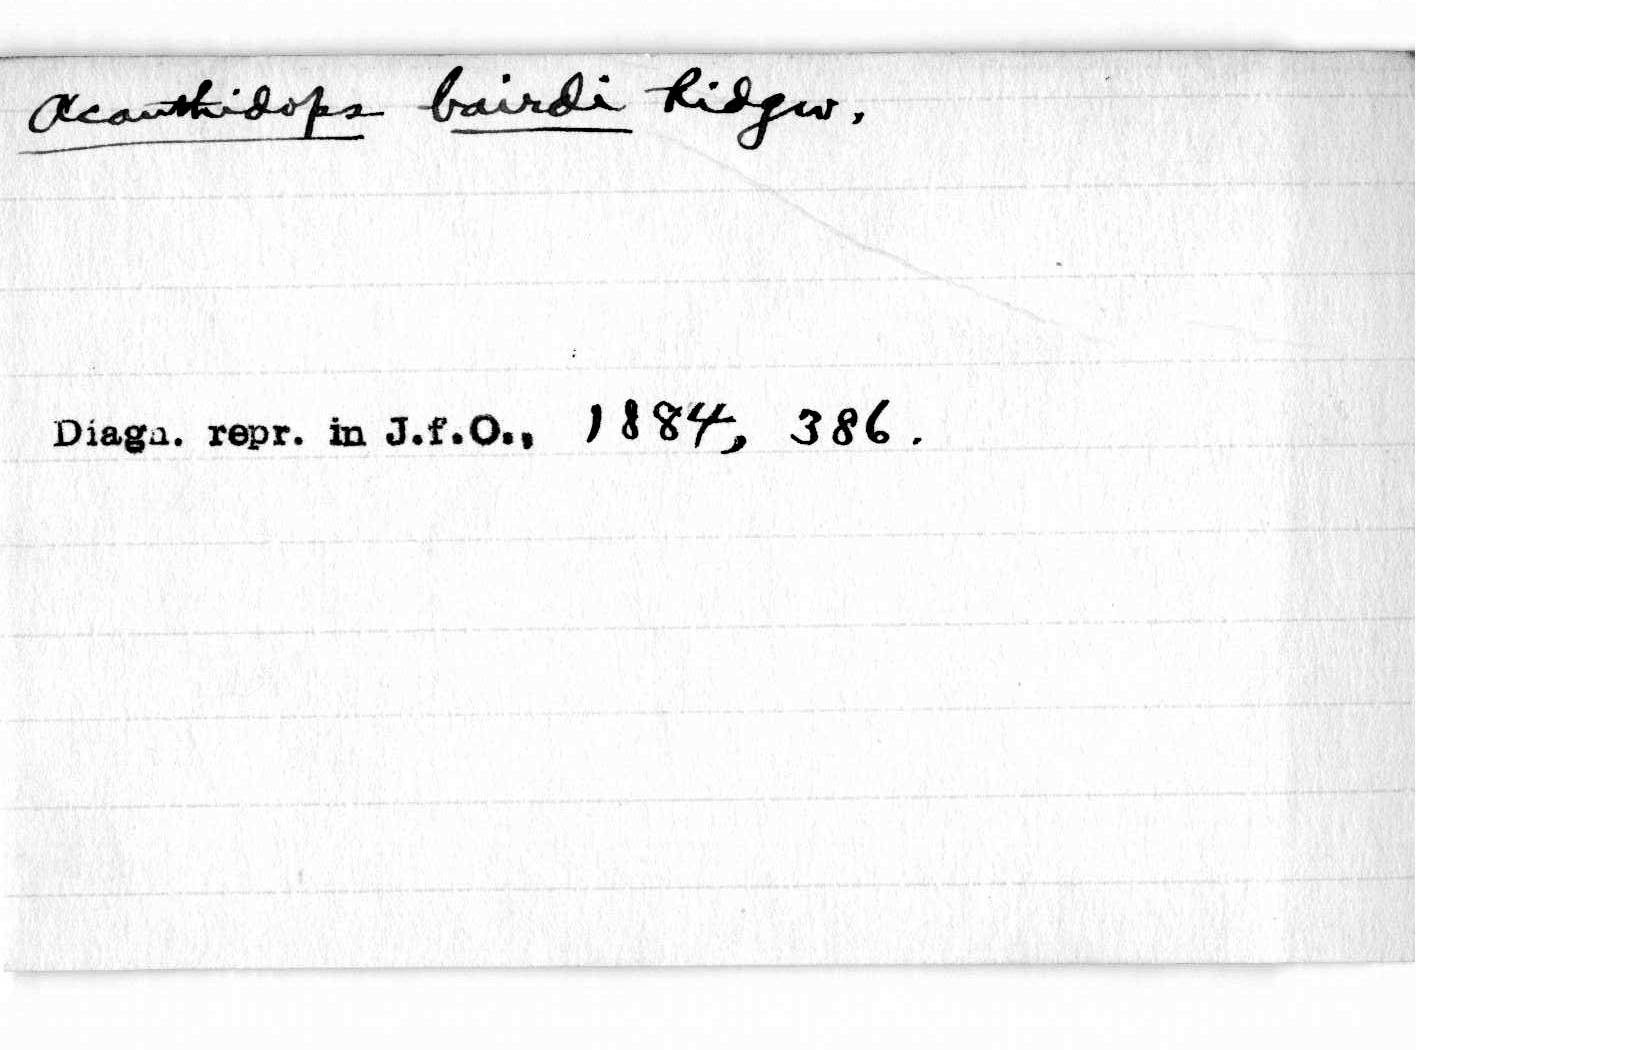 Acanthidops bairdi Ridgw.
Diagn. repr. in J.f.O., 1884, 386.